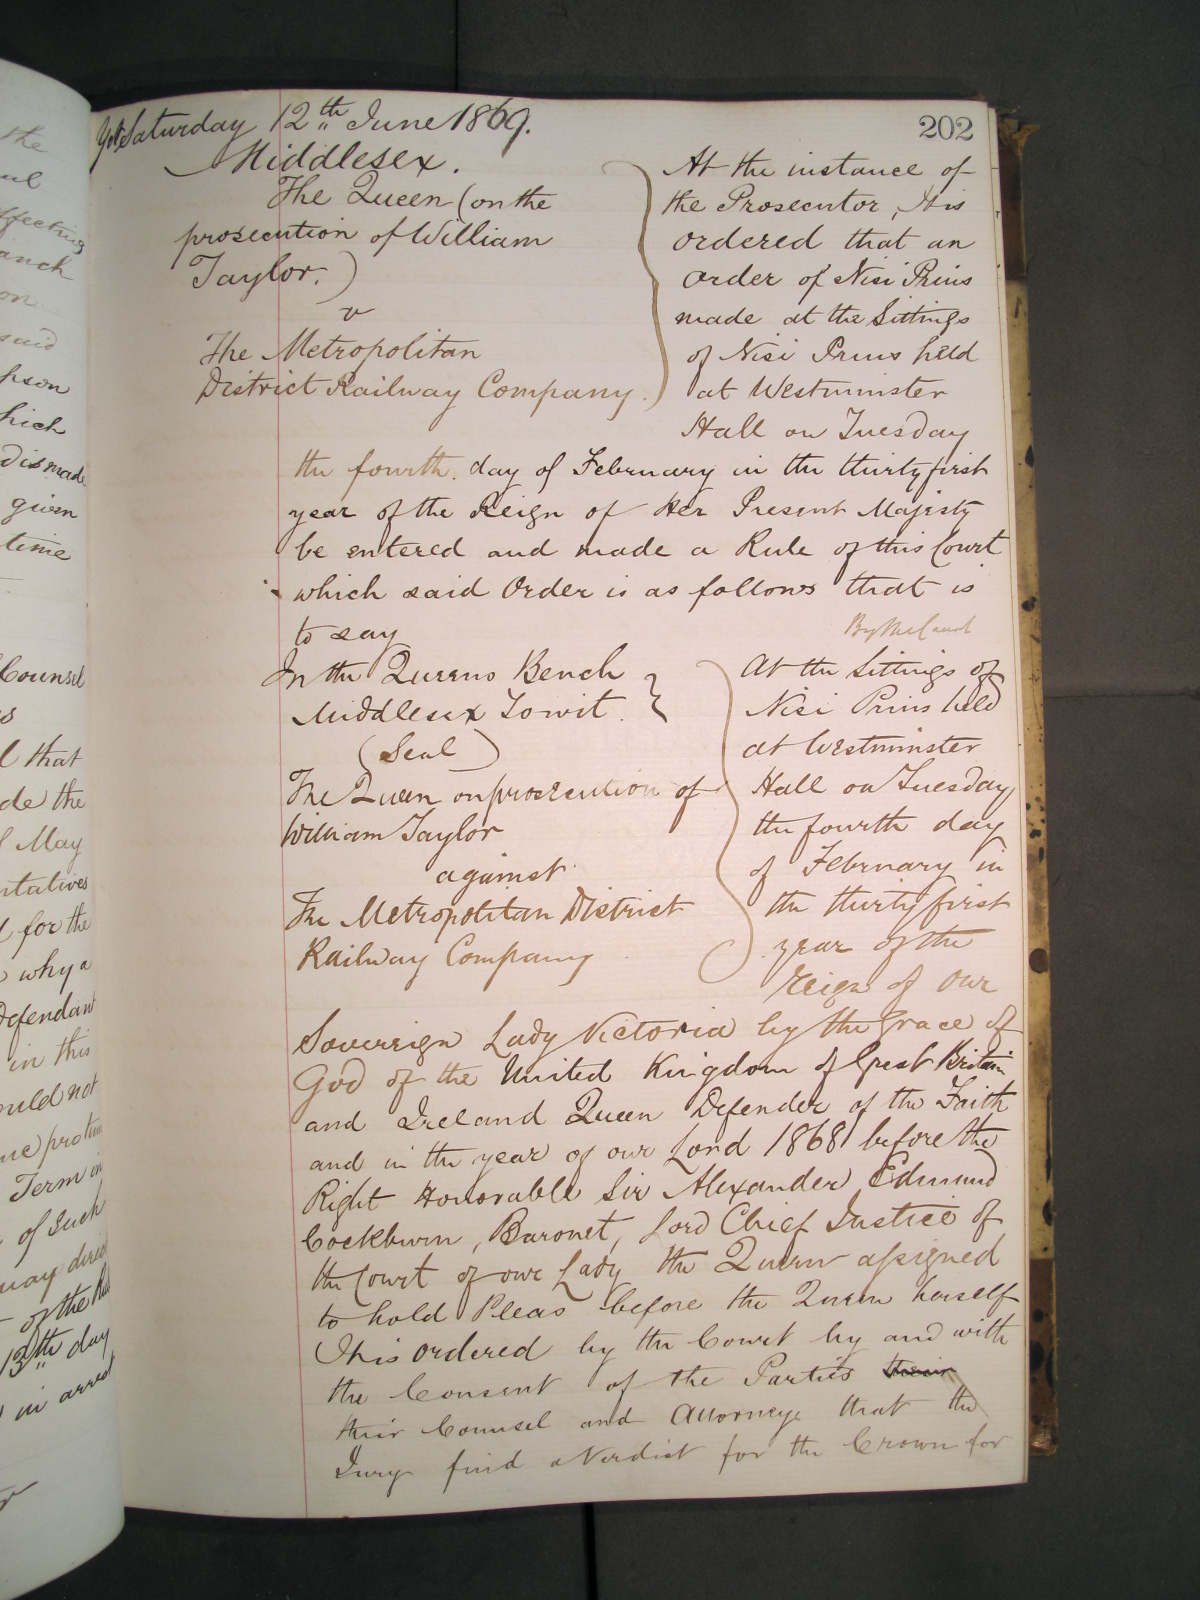 Yet Saturday 12th June 1869.
202
Middlesex.
The Queen (on the
prosecution of William
Taylor.)
v
The Metropolitan
District Railway Company.
At the instance of
the Prosecutor, It is
ordered that an
order of Nisi Prius
made at the Sittings
of Nisi Prius held
at Westminster
Hall on Tuesday
the fourth day of February in the thirty first
year of the Reign of Her Present Majesty
be entered and made a Rule of this Court
which said Order is as follows that is
to say
By the Court
In the Queens Bench
Middlesex Towit.
(Seal)
The Queen on prosecution of
William Taylor
against
The Metropolitan District
Railway Company
At the Sittings of
Nisi Prius held
at Westminster
Hall on Tuesday
the fourth day
of February in
the thirty first
year of the
reign of our
Sovereign Lady Victoria by the Grace of
God of the United Kingdom of Great Britain
and Ireland Queen Defender of the Faith
and in the year of our Lord 1868 before the
Right Honorable Sir Alexander Edmund
Cockburn, Baronet, Lord Chief Justice of
the Court of our Lady the Queen assigned
to hold Pleas before the Queen herself
It is ordered by the Court by and with
the Consent of the Parties
their Counsel and Attorneys that the
Jury find a Verdict for the Crown for
the
effecting
on
said
hich
d is made
given
time
Counsel
l that
de the
May
ntatives
for the
why a
Defendant
in this
ould not
Term in
of such
may direct
of the
13th day
in arrest